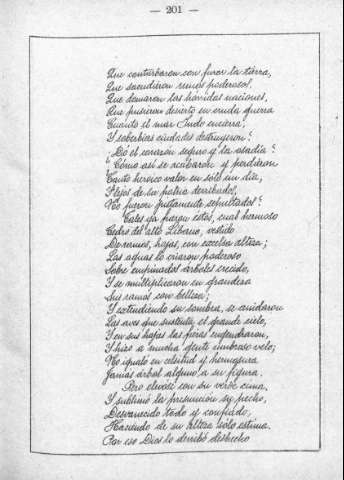 — 201 —
Que conturbaron con furor la tierra,
Que sacudieron reinos poderosos,
Que domaron las hórridas naciones,
Que pusieron desierto en cruda guerra
Cuanto el mar Indo encierra,
Y soberbias ciudades destruyeron?
¿Dó el corazón seguro y la osadía?
¿Cómo así se acabaron y perdieron
Tanto heroico valor en sólo un día,
Y lejos de la patria derribados,
No fueron justamente sepultados?
Tales ya fueron éstos, cual hermoso
Cedro del alto Líbano, vestido
De ramos, hojas, con excelsa alteza;
Las aguas lo criaron poderoso
Sobre empinados árboles crecido,
Y se multiplicaron en grandeza
Sus ramos con belleza;
Y extendiendo su sombra, se anidaron
Las aves que sustenta el grande cielo,
Y en sus hojas las fieras engendraron,
Y hizo a mucha gente umbroso velo;
No igualó en celsitud y hermosura
Jamás árbol alguno a su figura.
Pero elevóse con su verde cima,
Y sublimó la presunción su pecho,
Desvanecido todo y confiado,
Haciendo de su alteza sólo estima.
Por eso Dios lo derribó deshecho